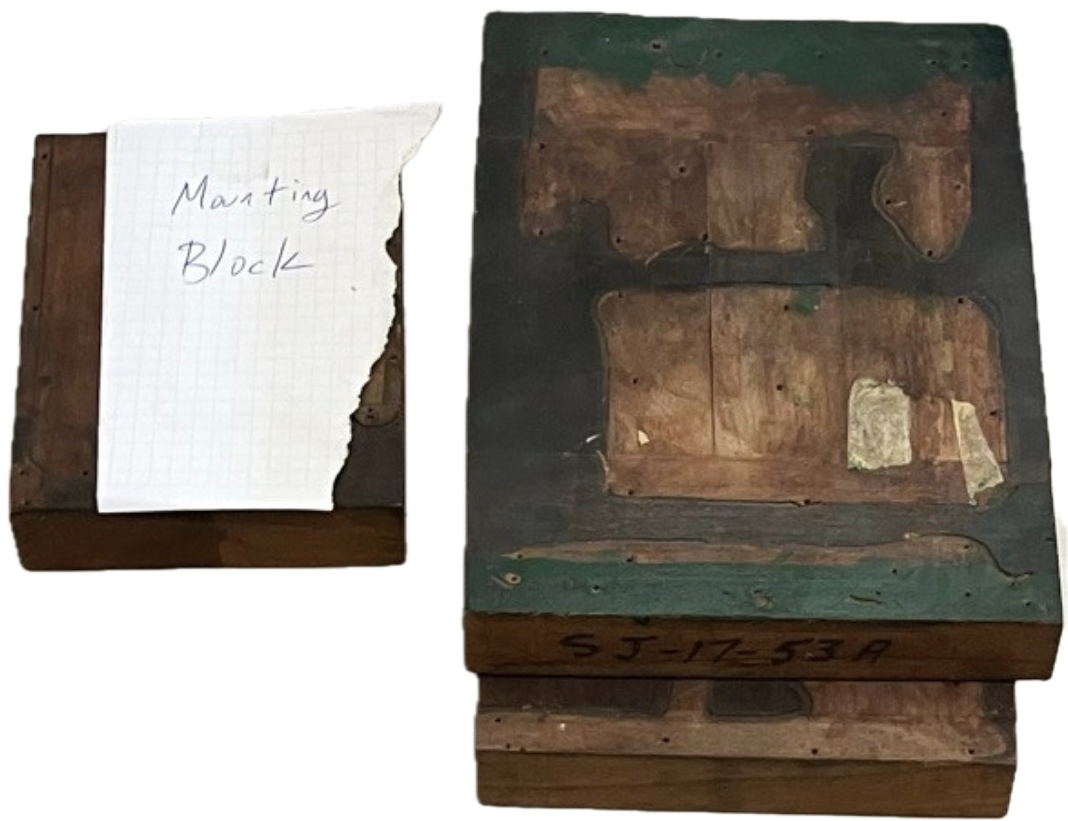 Mounting
Block
SJ-17-53A